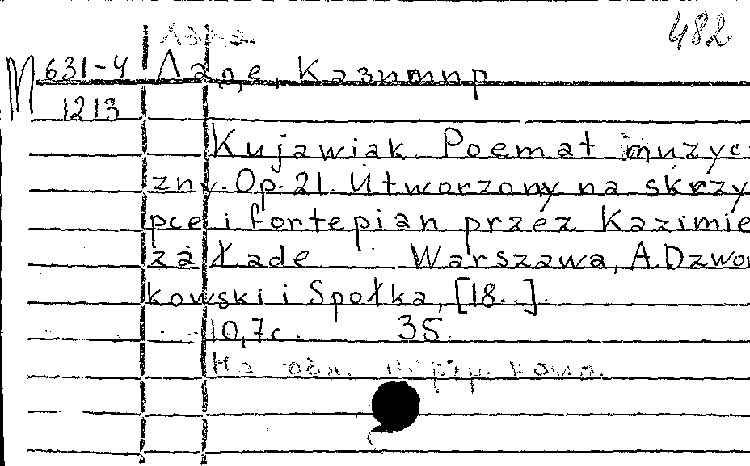 482
М 631-4 Ладе, Казимир
1213
Kujawiak. Poemat muzyc-
zny. Op. 21. Utworzony na skrzy-
pce i fortepian przez Kazimie-
za Łade Warszawa, A. Dzwon-
kowski i Społka, [18..].
10,7 с. 35
На обл.